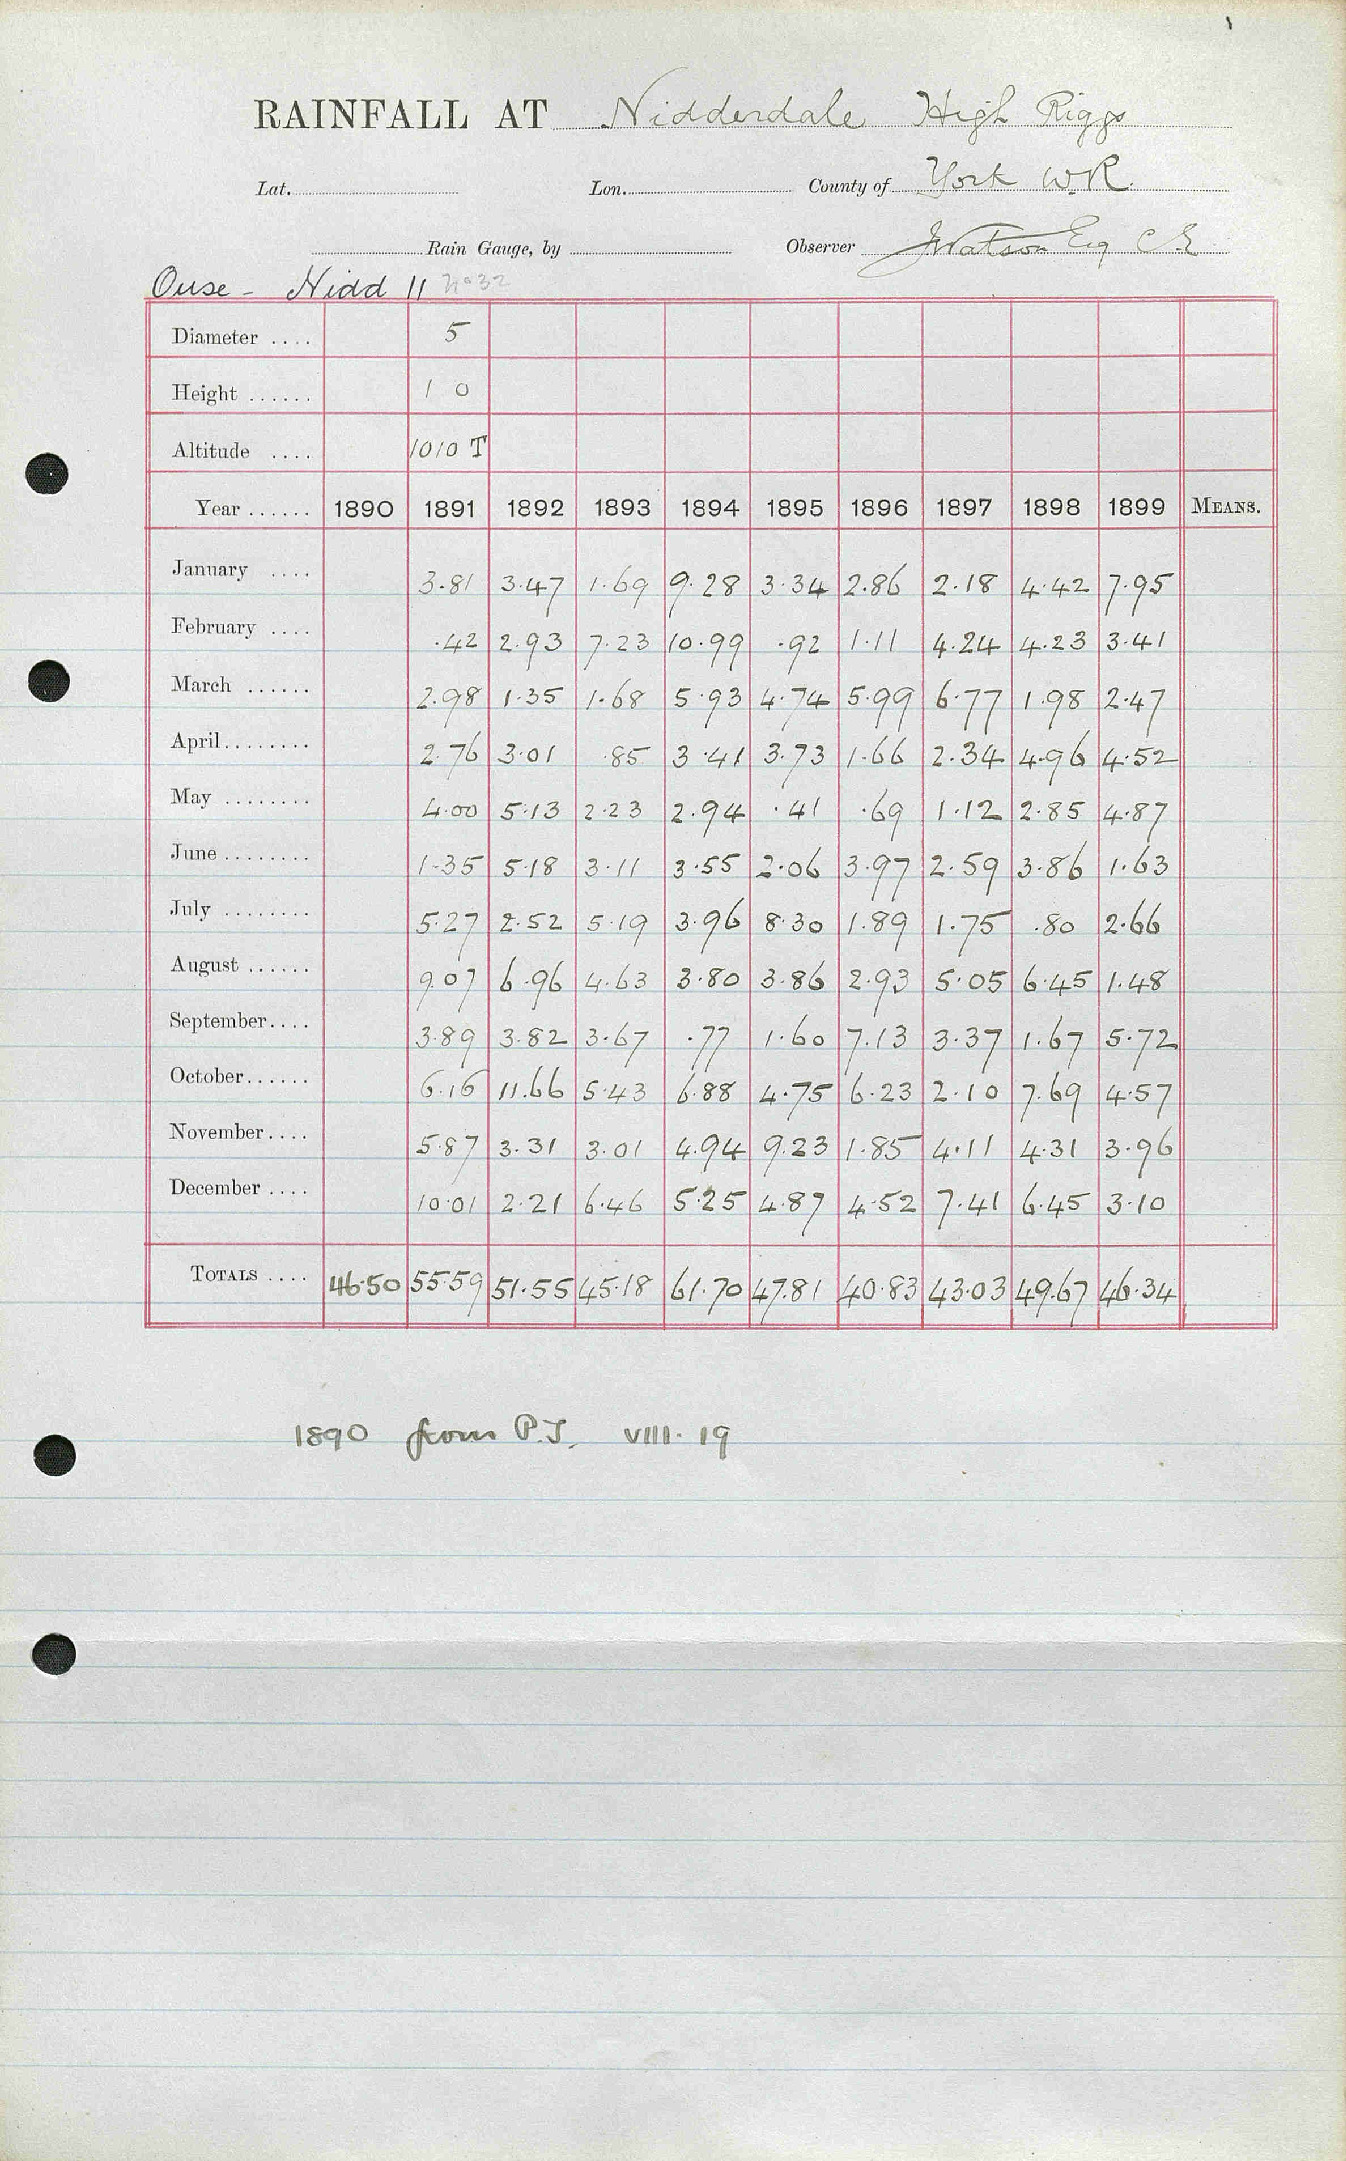 RAINFALL AT Nidderdale High Riggs
Lat. Lon. County of York W.R.
Rain Gauge, by Observer J Watson Esq C E
Ouse - Nidd 11
Diameter .... 5
Height ...... 1 0
Altitude .... 1010 T
Year ...... 1890 1891 1892 1893 1894 1895 1896 1897 1898 1899 MEANS.
January .... 3.81 3.47 1.69 9.28 3.34 2.86 2.18 4.42 7.95
February .... .42 2.93 7.23 10.99 .92 1.11 4.24 4.23 3.41
March ...... 2.98 1.35 1.68 5.93 4.74 5.99 6.77 1.98 2.47
April........ 2.76 3.01 .85 3.41 3.73 1.66 2.34 4.96 4.52
May ........ 4.00 5.13 2.23 2.94 .41 .69 1.12 2.85 4.87
June ........ 1.35 5.18 3.11 3.55 2.06 3.97 2.59 3.86 1.63
July ........ 5.27 2.52 5.19 3.96 8.30 1.89 1.75 .80 2.66
August ...... 9.07 6.96 4.63 3.80 3.86 2.93 5.05 6.45 1.48
September.... 3.89 3.82 3.67 .77 1.60 7.13 3.37 1.67 5.72
October...... 6.16 11.66 5.43 6.88 4.75 6.23 2.10 7.69 4.57
November.... 5.87 3.31 3.01 4.94 9.23 1.85 4.11 4.31 3.96
December .... 10.01 2.21 6.46 5.25 4.87 4.52 7.41 6.45 3.10
TOTALS .... 46.50 55.59 51.55 45.18 61.70 47.81 40.83 43.03 49.67 46.34
1890 from P.J. VIII. 19